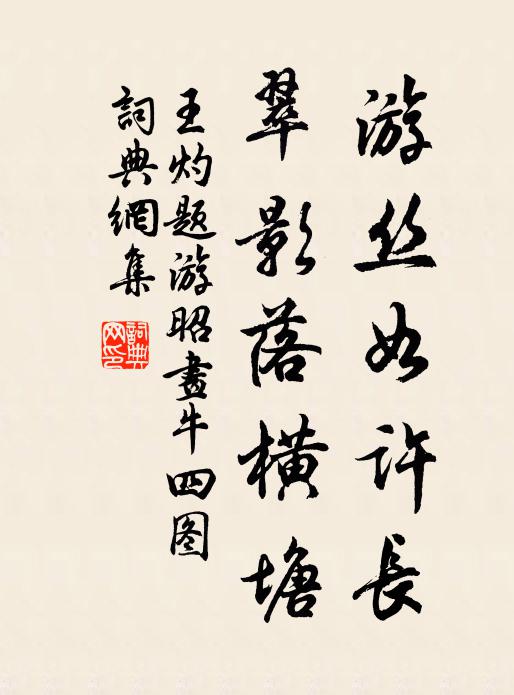 游丝如许長
翠影落橫塘
王灼题游昭畫牛四图
詞典網集
詞典网印